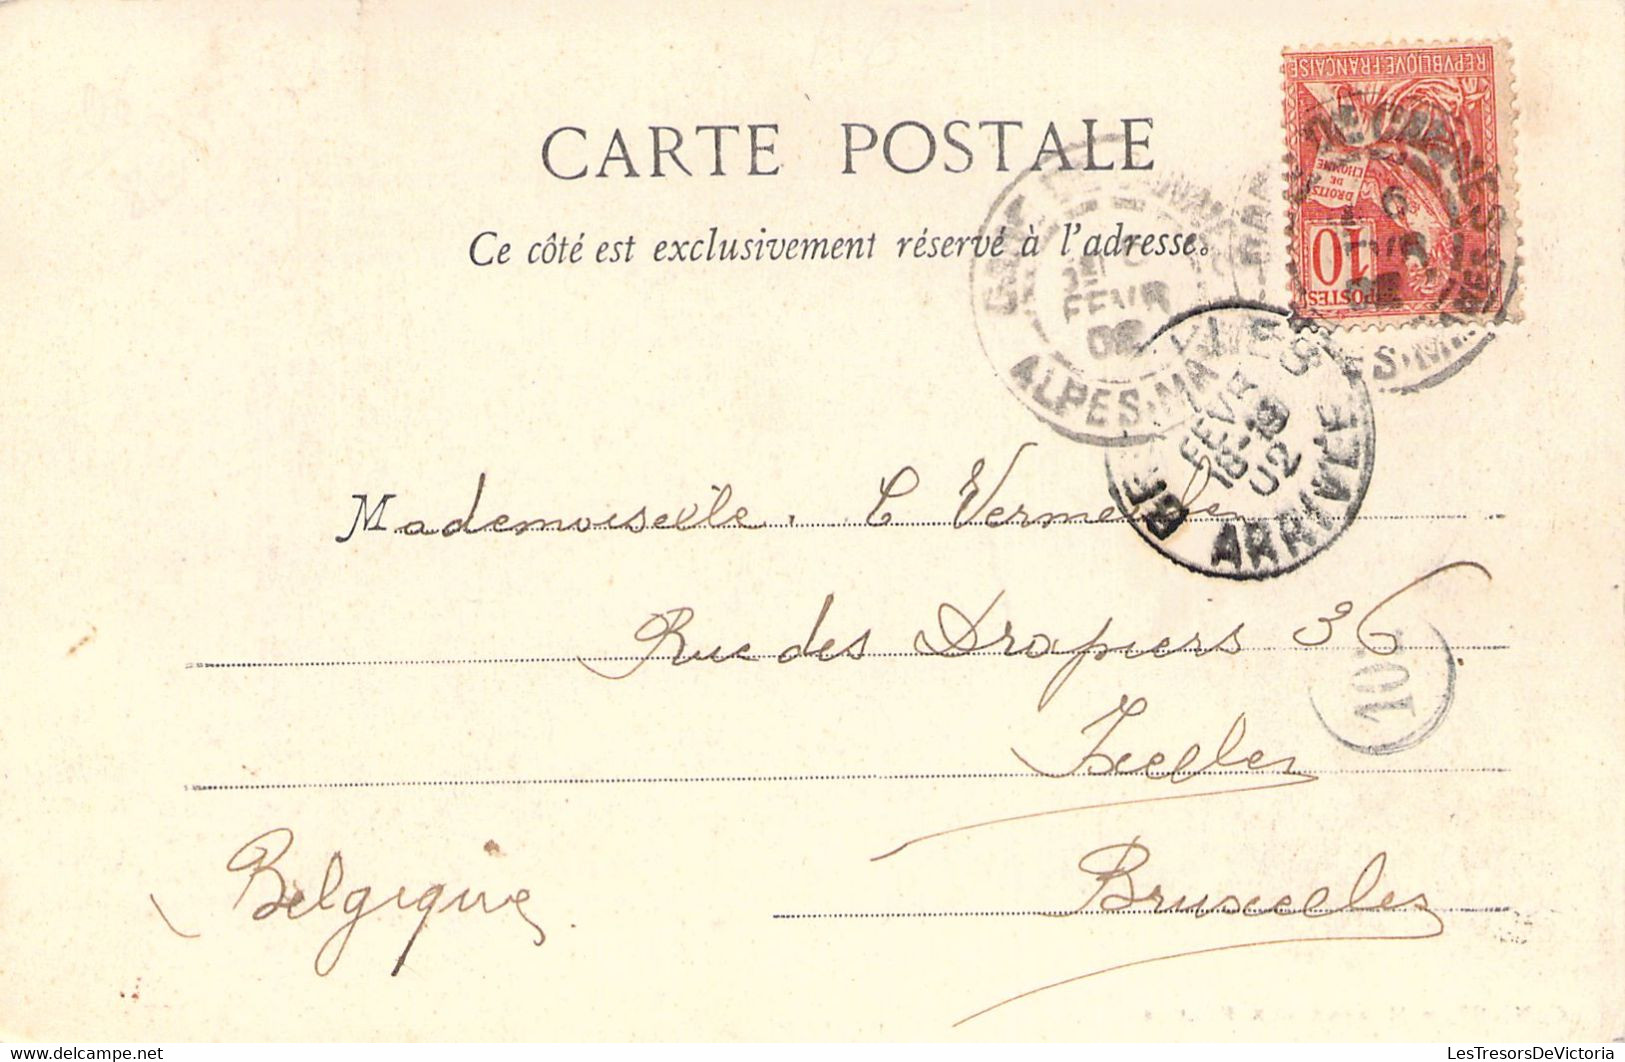 REPVBLIQVE FRANÇAISE
DROITS
DE
L'HOMME
10
POSTES
CARTE POSTALE
Ce côté est exclusivement réservé à l'adresse.
6
FEVR
02
ALPES-MA
FEVR
18-19
02
ARRIVÉE
Mademoiselle. C
Rue des Drapiers 36.
Ixelles
Belgique.
Bruxelles
LesTresorsDeVictoria